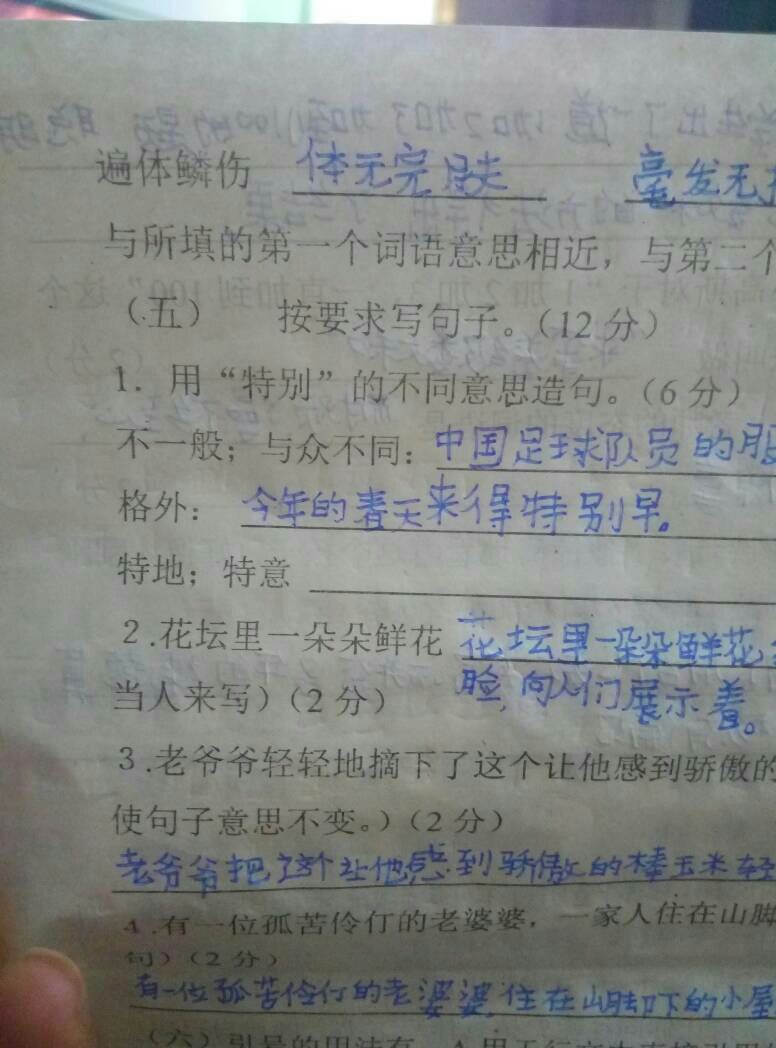 遍体鳞伤 体无完肤 毫发无
与所填的第一个词语意思相近，与第二个
（五） 按要求写句子。（12分）
1．用“特别”的不同意思造句。（6分）
不一般；与众不同：中国足球队员的服
格外：今年的春天来得特别早。
特地；特意
2.花坛里一朵朵鲜花 花坛里一朵朵鲜花
当人来写）（2分） 脸，向人们展示着。
3.老爷爷轻轻地摘下了这个让他感到骄傲的
使句子意思不变。）（2分）
老爷爷把这个让他感到骄傲的棒玉米轻
4.有一位孤苦伶仃的老婆婆，一家人住在山脚
句）（2分）
有一位孤苦伶仃的老婆婆住在山脚下的小屋
（六）引号的用法有